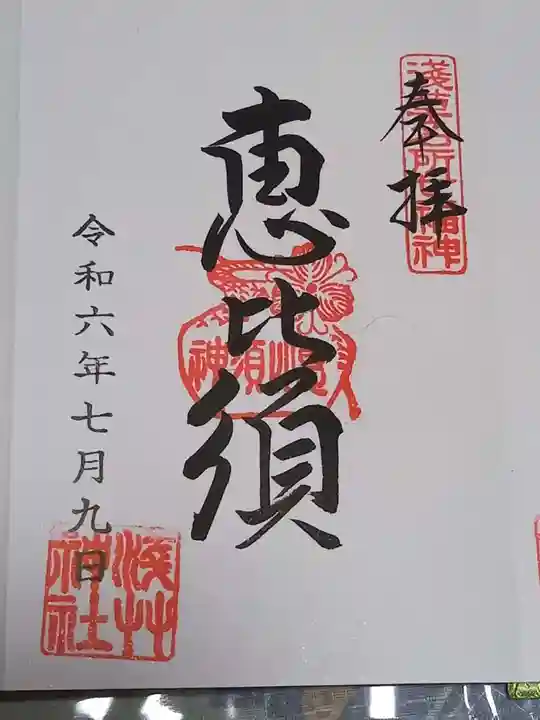 奉拝
浅草名所七福神
恵比須
恵比須神
令和六年七月九日
浅草
神社